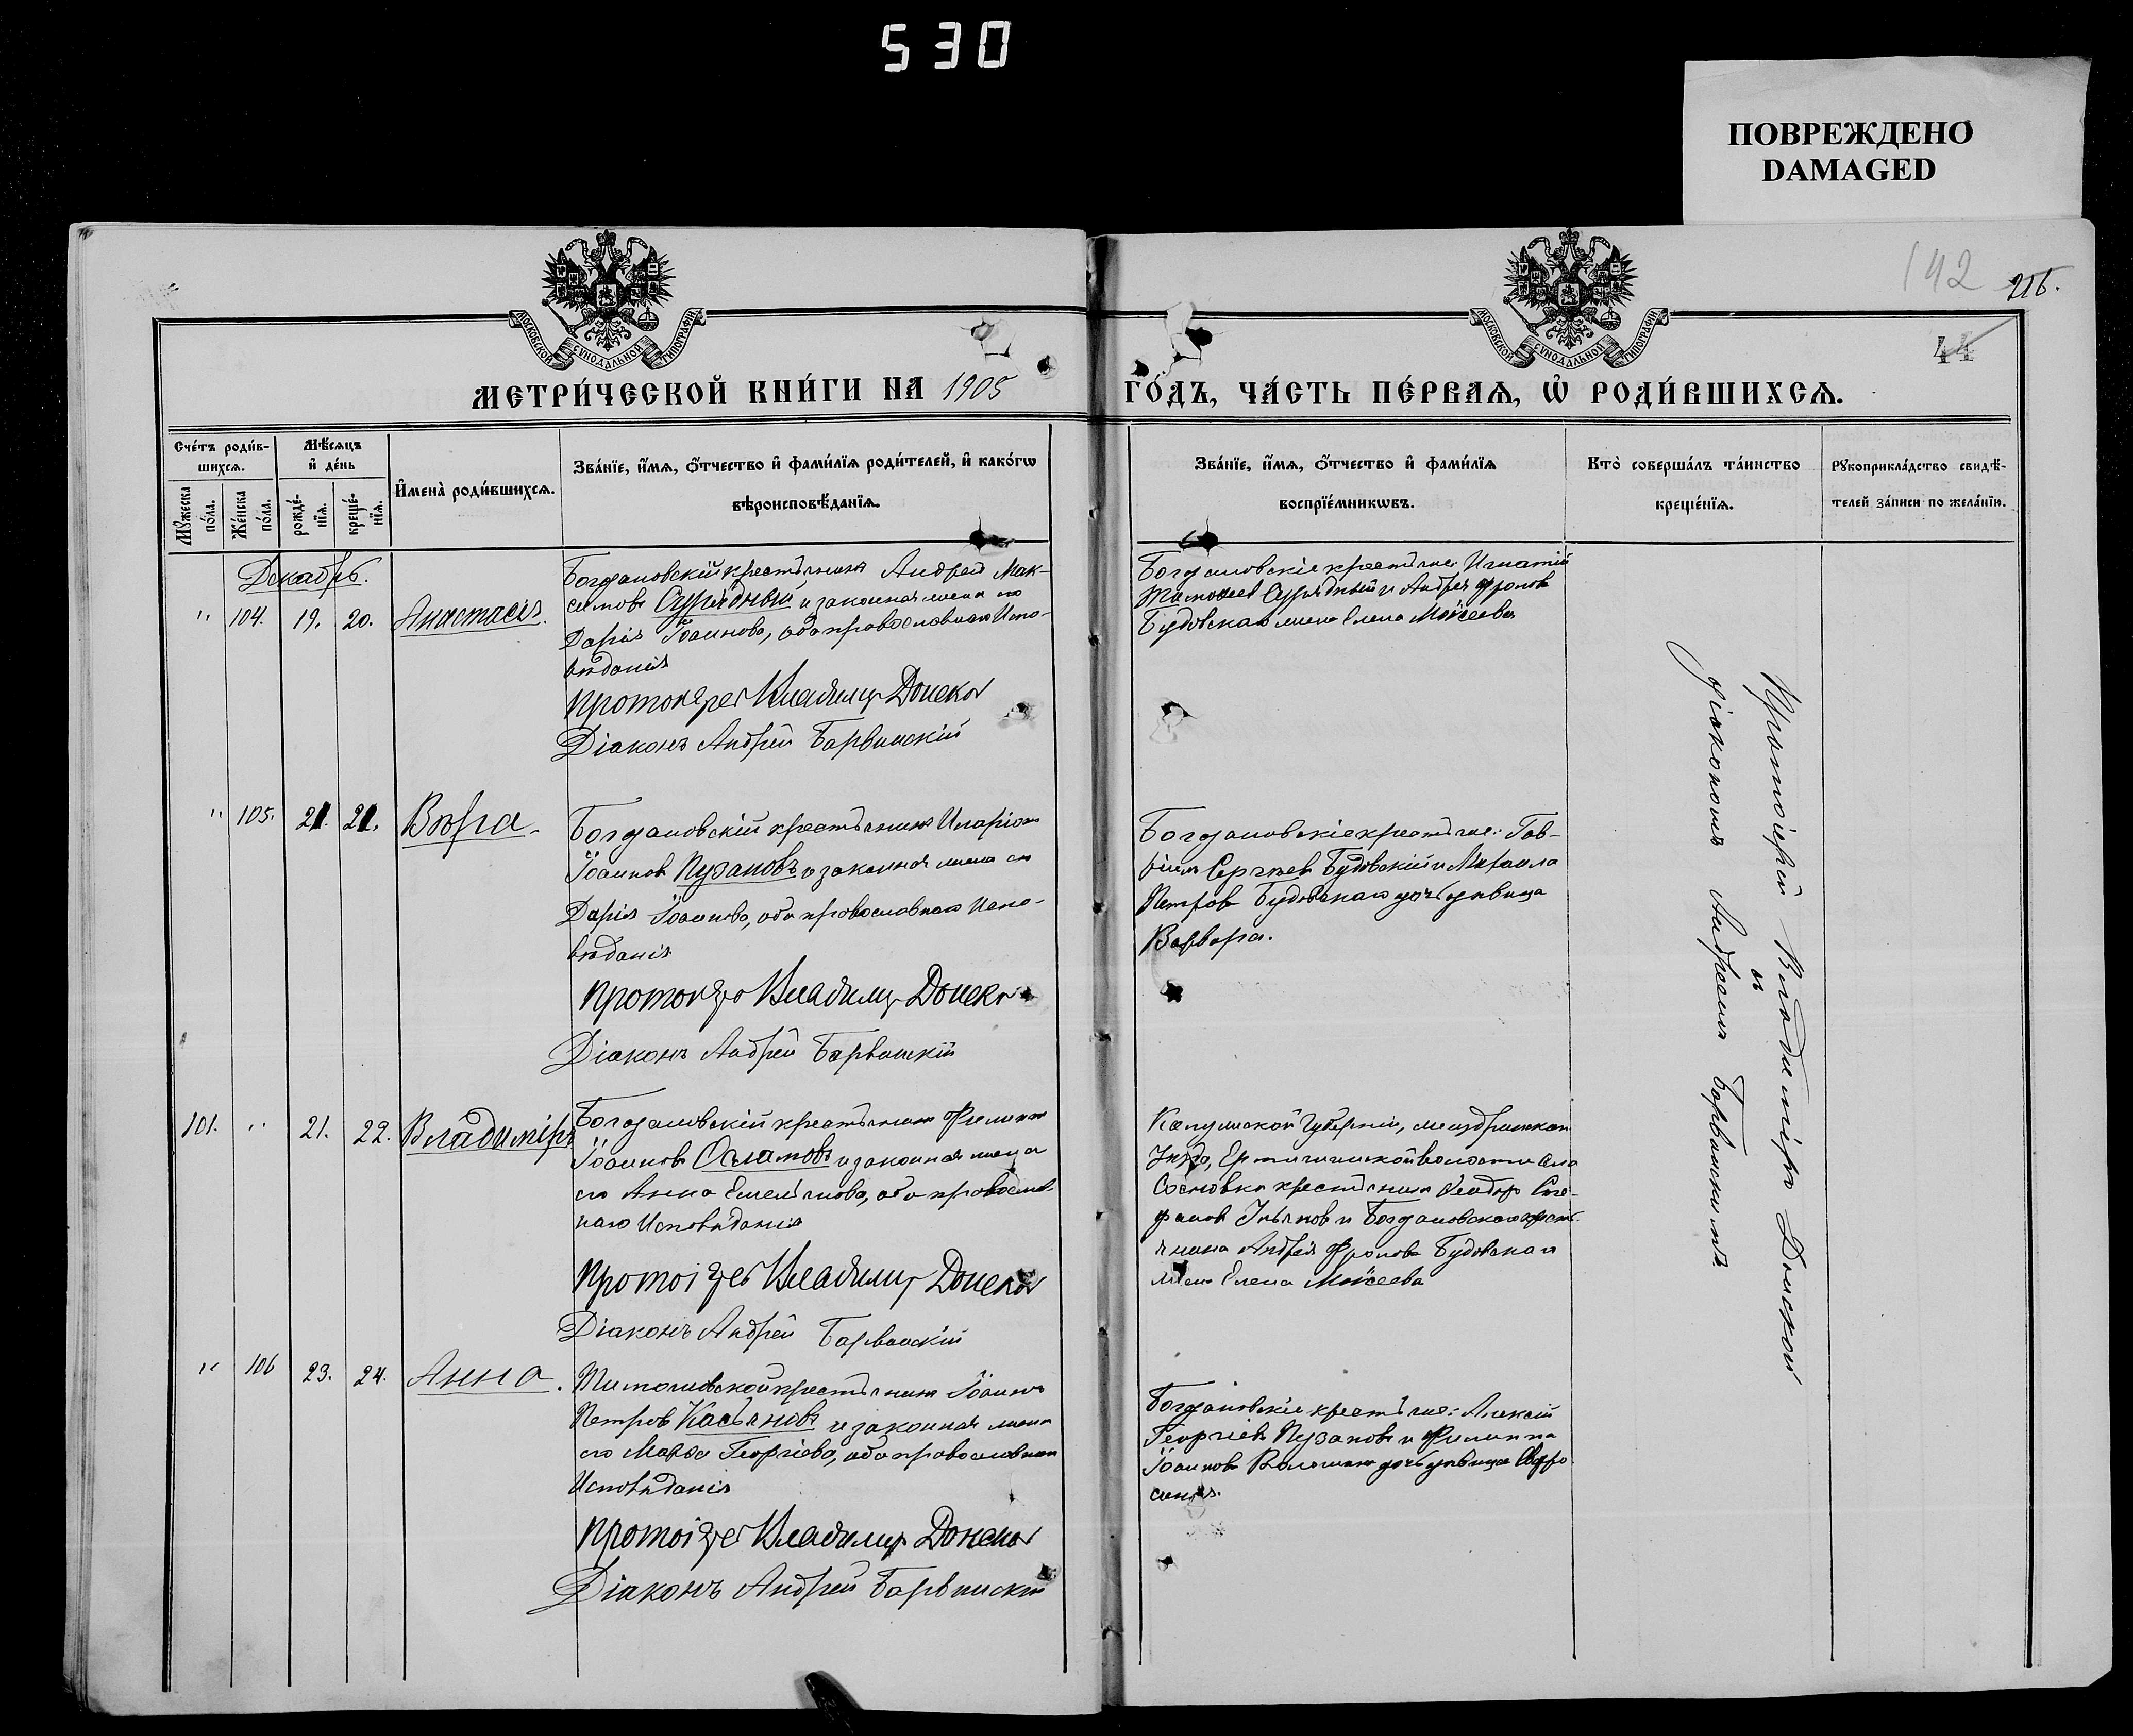 530
ПОВРЕЖДЕНО
DAMAGED
142 216.
44
МОСКОВСКОЙ СѴНОДАЛЬНОЙ ТИПОГРАФІИ
МОСКОВСКОЙ СѴНОДАЛЬНОЙ ТИПОГРАФІИ
МЕТРИ́ЧЕСКОЙ КНИ́ГИ НА 1905 ГО́ДЪ, ЧА́СТЬ ПЕ́РВАѦ, Ѡ҆ РОДИ́ВШИХСѦ.
Сче́тъ роди́вшихсѧ.
Мꙋ́жеска по́ла.
Же́нска по́ла.
Мѣ́сѧцъ и҆ де́нь
рожде́нїѧ.
креще́нїѧ.
И҆мена̀ роди́вшихсѧ.
Зва́нїе, и҆́мѧ, ѻ҆́тчество и҆ фами́лїѧ роди́телей, и҆ како́гѡ
вѣроисповѣ́данїѧ.
Зва́нїе, и҆́мѧ, ѻ҆́тчество и҆ фами́лїѧ
воспрїе́мникѡвъ.
Кто̀ соверша́лъ та́инство
креще́нїѧ.
Рꙋкоприкла́дство свидѣ́-
телей за́писи по жела́нїю.
Декабрь.
" 104. 19. 20. Анастасія.
Богдановскій крестьянинъ Андрей Мак-
симовъ и законная жена его
Дарія Іоаннова, оба православнаго Испо-
вѣданія
Протоіерей Владимир Донской
Діаконъ Андрей Барвинскій
Богдановскіе крестьяне: Игнатій
Тимофеев и Андрея Фролова
Будовскаго жена Елена Моѵсеева
" 105. 21. 21. Вѣра.
Богдановскій крестьянинъ Иларіон
Іоаннов Пузановъ и законная жена его
Дарія Іоаннова, оба православнаго Испо-
вѣданія
Протоіерей Владимир Донской
Діаконъ Андрей Барвинскій
Богдановскіе крестьяне: Гав-
ріилъ Сергѣев Будовскій и Михаила
Петрова Будовскаго дочь дѣвица
Варвара.
101. " 21. 22. Владиміръ
Богдановскій крестьянинъ Филиппъ
Іоанновъ и законная жена
его Анна Емельянова, оба православ-
наго Исповѣданія
Протоіерей Владимир Донской
Діаконъ Андрей Барвинскій
Калужской Губерніи,
Уѣзда, волости села
Сосновки крестьянинъ Ѳеодор Сте-
фанов и Богдановскаго кресть-
янина Андрея Фролова Будовскаго
жена Елена Моѵсеева
" 106 23. 24. Анна.
крестьянинъ Іоаннъ
Петров Касьяновъ и законная жена
его Марѳа Георгіева, оба православнаго
Исповѣданія
Протоіерей Владимир Донской
Діаконъ Андрей Барвинскій
Богдановскіе крестьяне: Алексій
Георгіевъ Пузановъ и Филиппа
Іоаннова дочь дѣвица Евфро-
синія.
Протоіерей Владиміръ Донской
съ
діакономъ Андреемъ Барвинскимъ